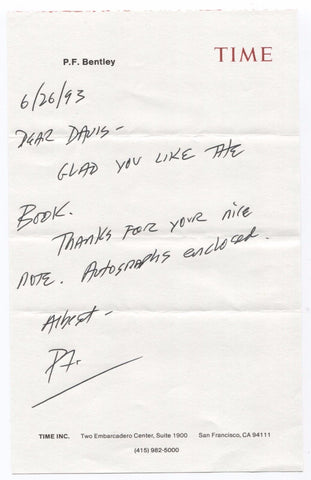 P.F. Bentley
TIME
6/26/93
DEAR DAVIS -
GLAD YOU LIKE THE
BOOK.
THANKS FOR YOUR NICE
NOTE. AUTOGRAPHS ENCLOSED.
P.F.
TIME INC. Two Embarcadero Center, Suite 1900 San Francisco, CA 94111
(415) 982-5000